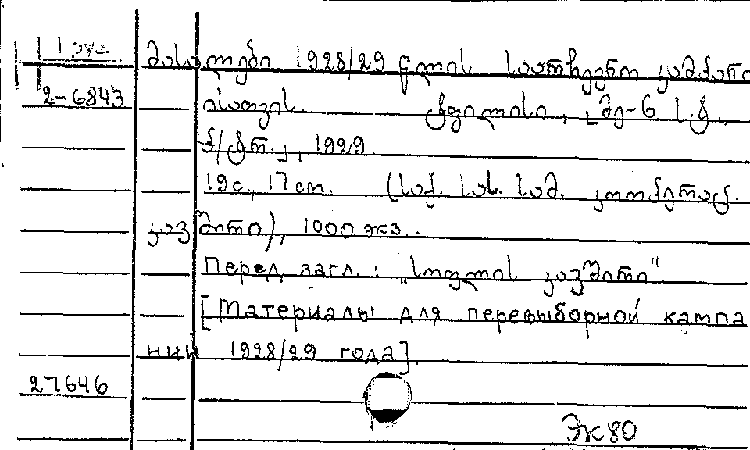 მასალები 1928/29 წლის საარჩევნო კამპანი
2-6843
ისათვის. ტფილისი, [მე-6 ს.ტ.
ქ/ტრ.], 1929.
19 с., 17 см. (საქ. სას. სამ. კოოპერატ.
კავშირი), 1000 экз..
Перед загл.: „სოფლის კავშირი"
[Материалы для перевыборной кампа
нии 1928/29 года].
27646
Эк80